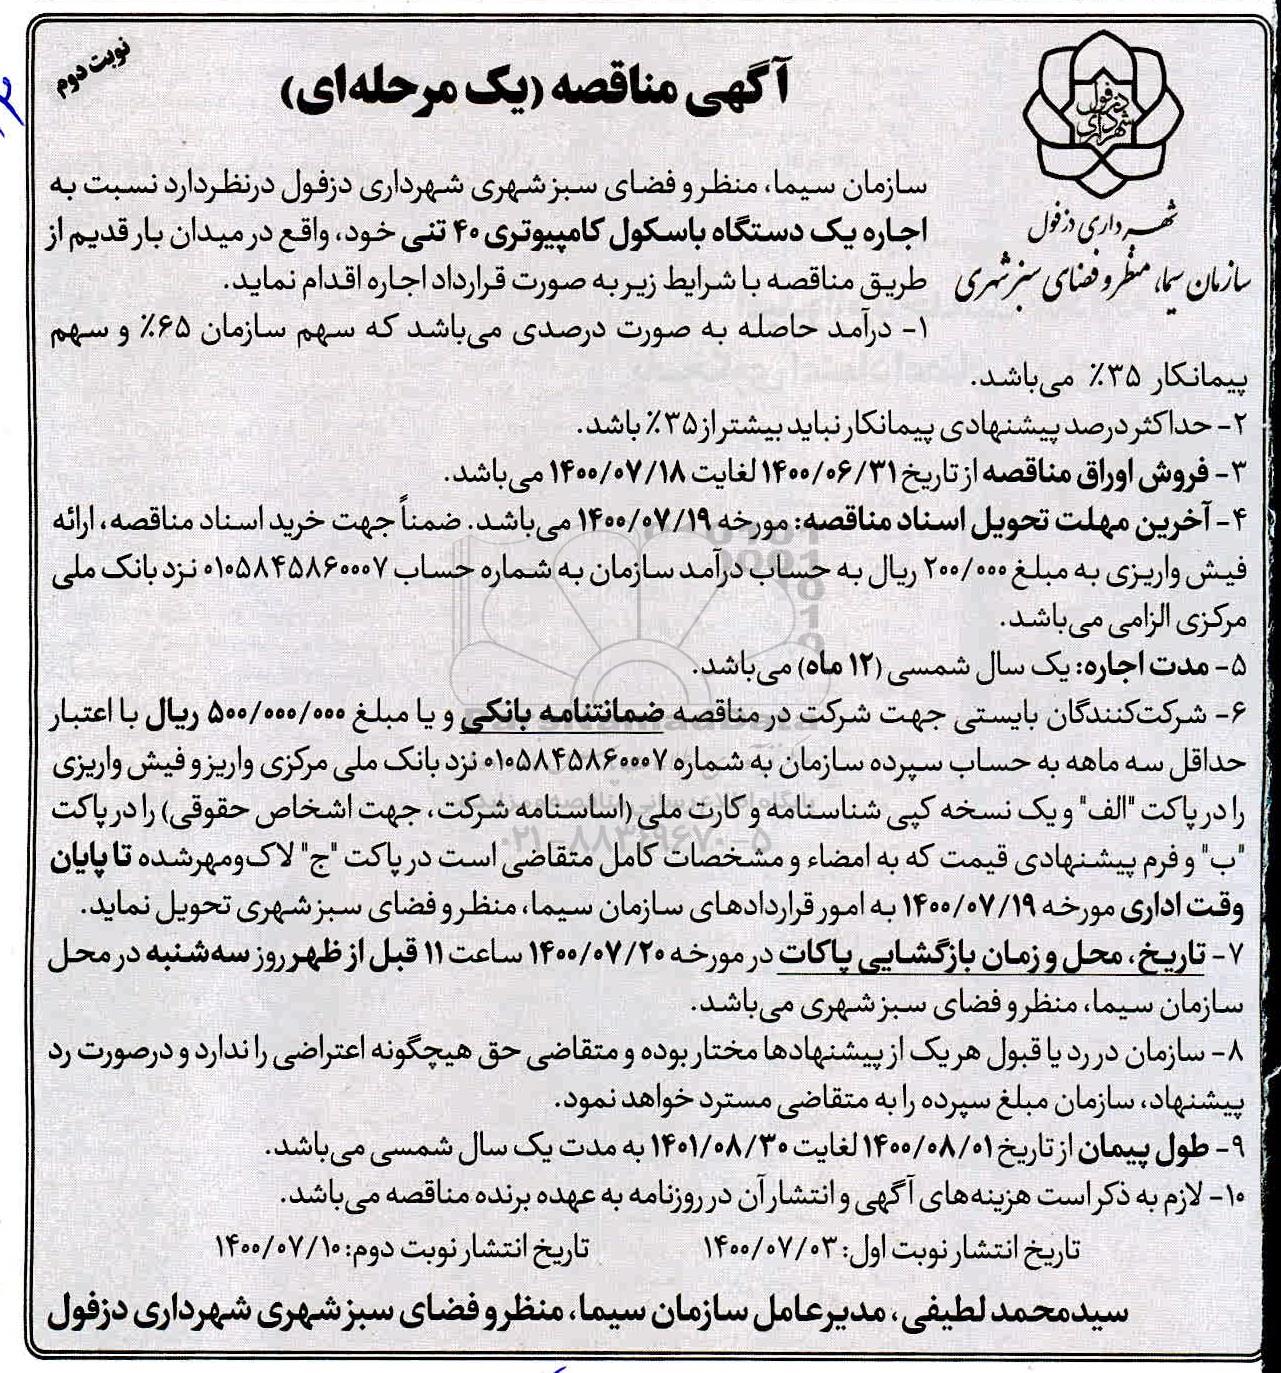 نوبت دوم
آگهی مناقصه (یک مرحله‌ای)
دزفول
شهرداری
شهرداری دزفول
سازمان سیما، منظر و فضای سبز شهری
سازمان سیما، منظر و فضای سبز شهری شهرداری دزفول درنظردارد نسبت به
اجاره یک دستگاه باسکول کامپیوتری ۴۰ تنی خود، واقع در میدان بار قدیم از
طریق مناقصه با شرایط زیر به صورت قرارداد اجاره اقدام نماید.
۱- درآمد حاصله به صورت درصدی می‌باشد که سهم سازمان ۶۵٪ و سهم
پیمانکار ۳۵٪ می‌باشد.
۲- حداکثر درصد پیشنهادی پیمانکار نباید بیشتر از ۳۵٪ باشد.
۳- فروش اوراق مناقصه از تاریخ ۱۴۰۰/۰۶/۳۱ لغایت ۱۴۰۰/۰۷/۱۸ می‌باشد.
۴- آخرین مهلت تحویل اسناد مناقصه: مورخه ۱۴۰۰/۰۷/۱۹ می‌باشد. ضمناً جهت خرید اسناد مناقصه، ارائه
فیش واریزی به مبلغ ۲۰۰/۰۰۰ ریال به حساب درآمد سازمان به شماره حساب ۰۱۰۵۸۴۵۸۶۰۰۰۷ نزد بانک ملی
مرکزی الزامی می‌باشد.
۵- مدت اجاره: یک سال شمسی (۱۲ ماه) می‌باشد.
۶- شرکت‌کنندگان بایستی جهت شرکت در مناقصه ضمانتنامه بانکی و یا مبلغ ۵۰۰/۰۰۰/۰۰۰ ریال با اعتبار
حداقل سه ماهه به حساب سپرده سازمان به شماره ۰۱۰۵۸۴۵۸۶۰۰۰۷ نزد بانک ملی مرکزی واریز و فیش واریزی
را در پاکت "الف" و یک نسخه کپی شناسنامه و کارت ملی (اساسنامه شرکت، جهت اشخاص حقوقی) را در پاکت
"ب" و فرم پیشنهادی قیمت که به امضاء و مشخصات کامل متقاضی است در پاکت "ج" لاک‌ومهرشده تا پایان
وقت اداری مورخه ۱۴۰۰/۰۷/۱۹ به امور قراردادهای سازمان سیما، منظر و فضای سبز شهری تحویل نماید.
۷- تاریخ، محل و زمان بازگشایی پاکات در مورخه ۱۴۰۰/۰۷/۲۰ ساعت ۱۱ قبل از ظهر روز سه‌شنبه در محل
سازمان سیما، منظر و فضای سبز شهری می‌باشد.
۸- سازمان در رد یا قبول هر یک از پیشنهادها مختار بوده و متقاضی حق هیچگونه اعتراضی را ندارد و درصورت رد
پیشنهاد، سازمان مبلغ سپرده را به متقاضی مسترد خواهد نمود.
۹- طول پیمان از تاریخ ۱۴۰۰/۰۸/۰۱ لغایت ۱۴۰۱/۰۸/۳۰ به مدت یک سال شمسی می‌باشد.
۱۰- لازم به ذکر است هزینه‌های آگهی و انتشار آن در روزنامه به عهده برنده مناقصه می‌باشد.
تاریخ انتشار نوبت اول: ۱۴۰۰/۰۷/۰۳ تاریخ انتشار نوبت دوم: ۱۴۰۰/۰۷/۱۰
سیدمحمد لطیفی، مدیرعامل سازمان سیما، منظر و فضای سبز شهری شهرداری دزفول